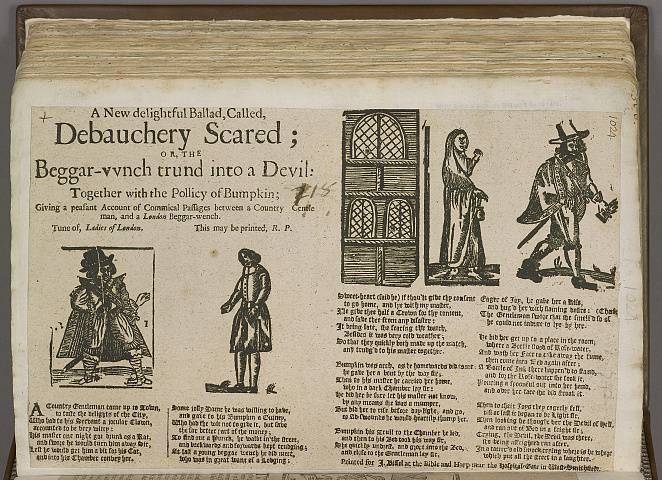 A New delightful Ballad, Called,
Debauchery Scared;
OR, THE
Beggar-vvnch trund into a Devil:
Together with the Pollicy of Bumpkin;
Giving a peasant Account of Commical Passages between a Country Gentle
man, and a London Beggar-wench.
Tune of, Ladies of London. This may be printed, R. P.
A Country Gentleman came up to Town,
to taste the delights of the City,
Who had to his Servant a jocular Clown,
accounted to be very witty:
His master one night got drunk as a Rat,
and home he would turn him away Sir,
left he would get him a bit for his Cat,
and into his Chamber convey her.
Some jolly Dame he was willing to have,
and gave to his Bumpkin a Guiney,
Who had the wit not to give it, but save
the far better part of the money;
To find out a Punck, he walkt in the street,
and backwards and forwards kept trudging;
At last a young beggar wench he did meet,
who was in great want of a Lodging;
Sweet-heart (said he) if thou'lt give thy consent
to go home, and lye with my master,
I'le give thee half a Crown for thy content,
and save thee from any disaster;
It being late, she fearing the watch,
Besides it was very cold weather;
So that they quickly both made up the match,
and trudg'd to his master together.
Bumpkin was arch, as he homewards did
he gave her a bout by the way Sir;
Then to his master he carried her home,
who in a dark Chamber lay Sir;
He bid her be sure let his master not know,
by any means she was a mummer,
But bid her to rise before day-light, and go,
Bumpkin his Trull to the Chamber he
and then to his Bed took his way Sir,
She quickly undrest, and crept into the Bed,
and close to the Gentleman lay Sir,
Eager of Joy, he gave her a Kiss,
and hug'd her with flaming desire:
The Gentleman swore that she
he could not indure to lye by her.
He bid her get up to a place in the room,
where a Bottle stood of Rose-water,
And wash her Face to take away the fume,
then come into Bed again after:
A Bottle of Ink there happen'd to stand,
and for the Rose-water she took it,
Pouring a spoonful out into her hand,
and over her face she did stroak it.
Then to their Joys they eagerly fell,
till at last it began to be light Sir,
Then looking he thought her the Devil of Hell,
and ran out of Bed in a fright Sir;
Crying, the Devil, the Devil was there,
Printed for J. Bissel at the Bible and Harp near the Hospital-Gate in West-Smithfield.